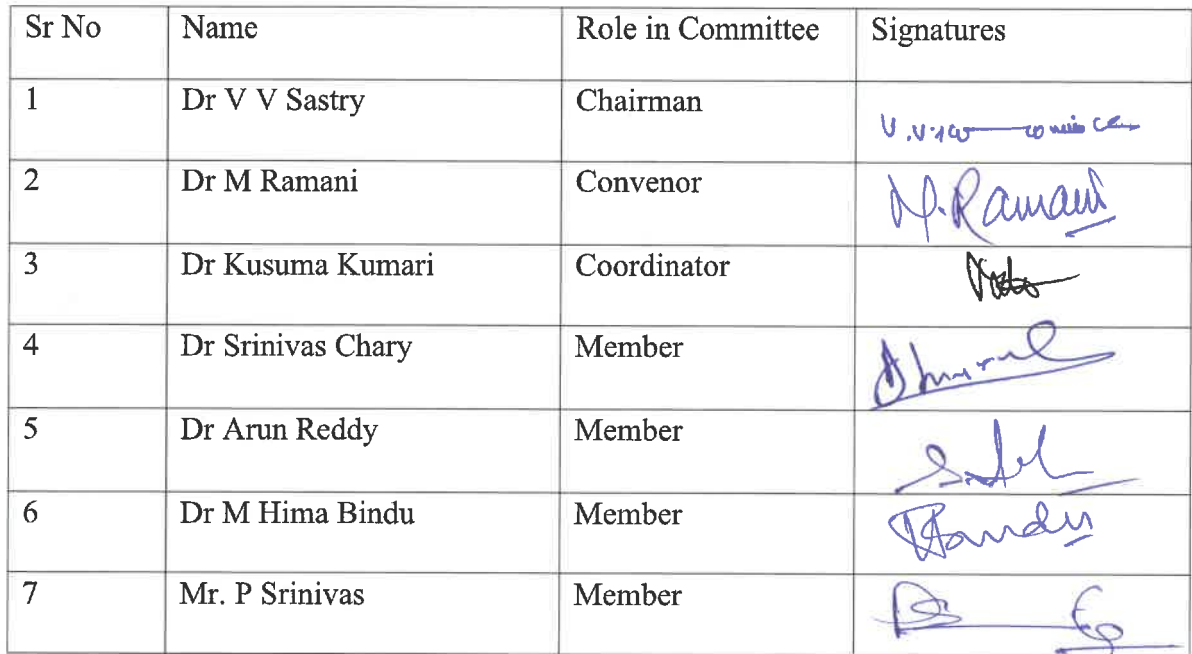 Sr No Name Role in Committee Signatures
1 Dr V V Sastry Chairman
2 Dr M Ramani Convenor M. Ramani
3 Dr Kusuma Kumari Coordinator
4 Dr Srinivas Chary Member
5 Dr Arun Reddy Member
6 Dr M Hima Bindu Member
7 Mr. P Srinivas Member